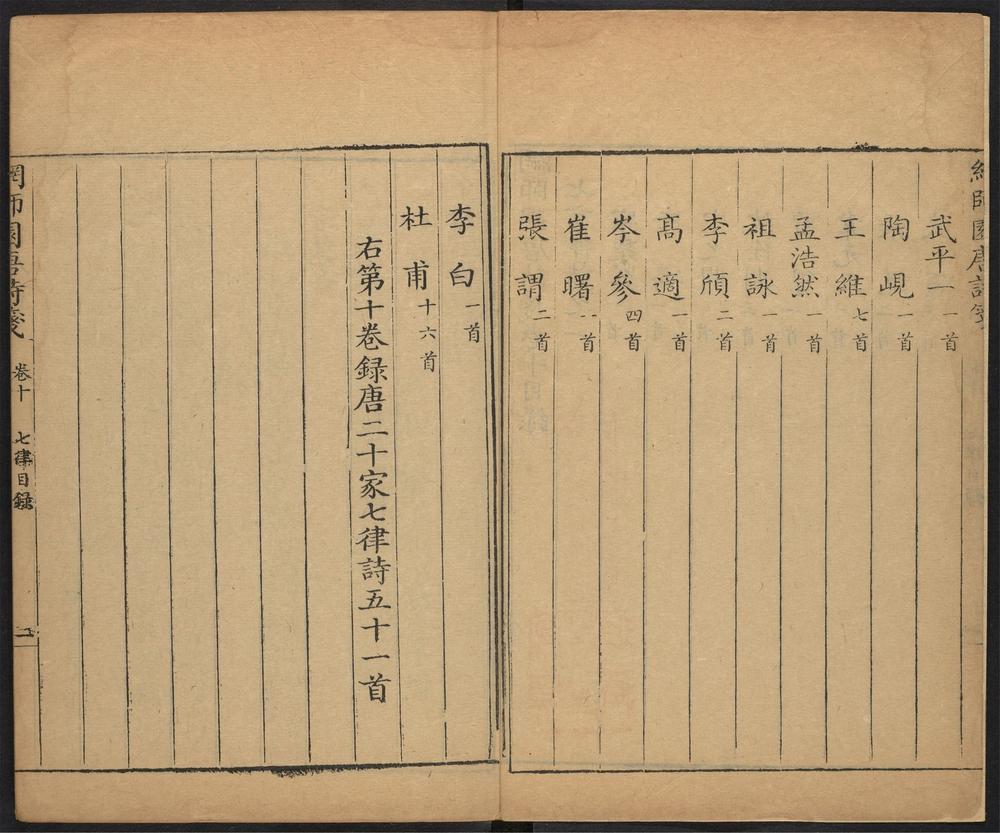 網師園唐詩箋
武平一 一首
陶峴 一首
王維 七首
孟浩然 一首
祖詠 一首
李頎 二首
高適 一首
岑參 四首
崔曙 一首
張謂 二首
李白 一首
杜甫 十六首
右第十卷録唐二十家七律詩五十一首
網師園唐詩箋 卷十 七律目録 二